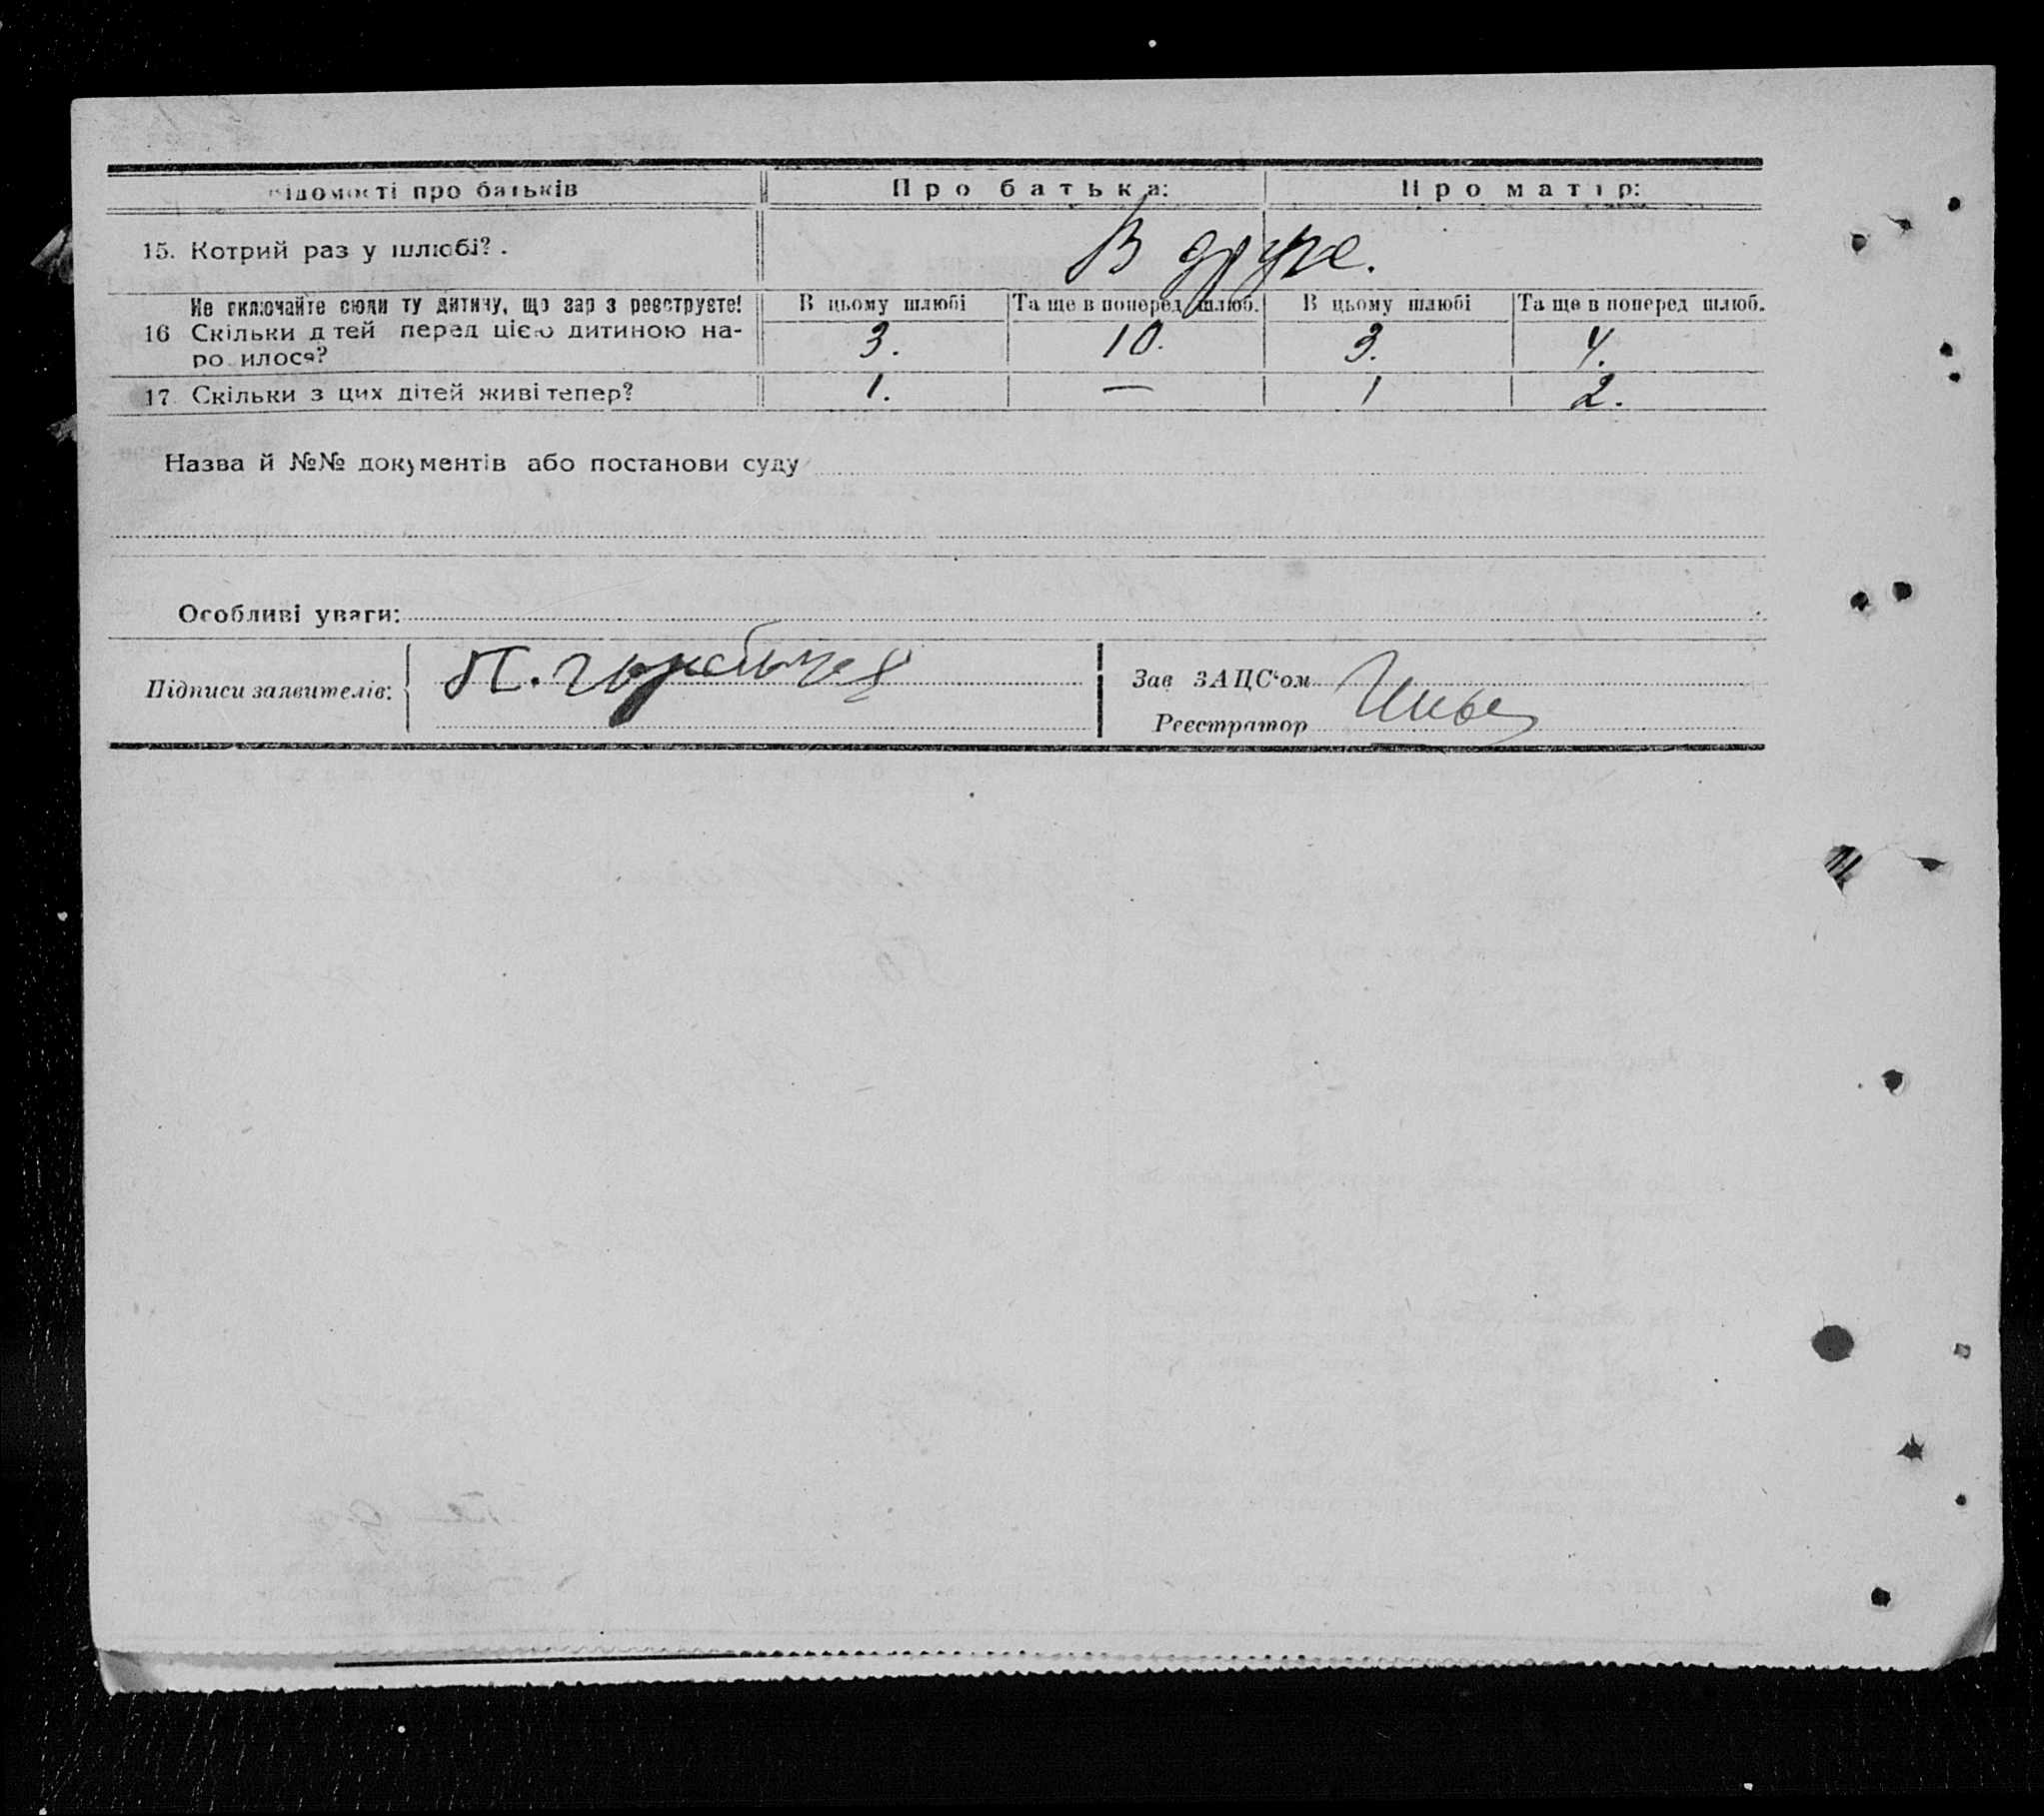 Відомості про батьків Про батька: Про матір:
15. Котрий раз у шлюбі? . В друге.
Не включайте сюди ту дитину, що зар з реєструєте! В цьому шлюбі Та ще в поперед шлюб. В цьому шлюбі Та ще в поперед шлюб.
16 Скільки д тей перед цією дитиною на- 3. 10. 3. 4.
ро илося?
17. Скільки з цих дітей живі тепер? 1. — 1 2.
Назва й №№ документів або постанови суду
Особливі уваги:
Підписи заявителів: П.
Зав ЗАЦС'ом
Реєстратор